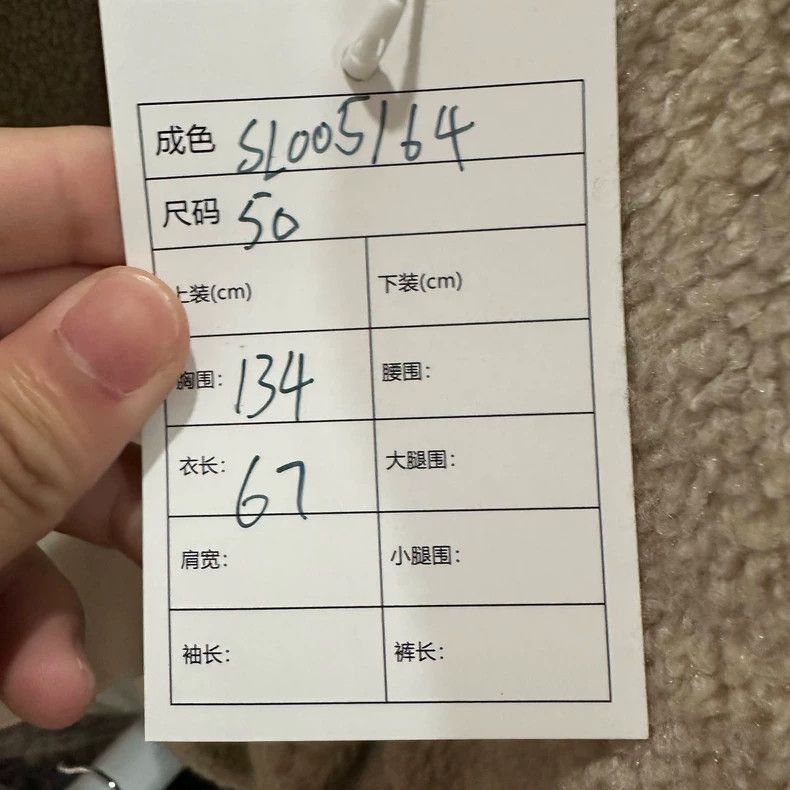 成色 SL005164
尺码 50
上装(cm) 下装(cm)
胸围: 134 腰围:
衣长: 67 大腿围:
肩宽: 小腿围:
袖长: 裤长: